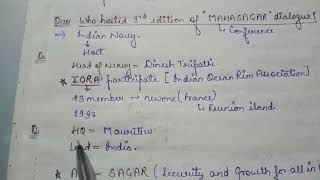 Que Who hosted 3rd edition of "MAHASAGAR" dialogue?
⇒ Indian Navy. ↳ Conference
↳ Host
Head of Neavy = Dinesh Tripati
* IORA partifipate [Indian Ocean Rim Association]
↳ 23 member → newone (France)
1997 ↳ Reunion iland.
Q HQ = Mauritius
Lead = India.
SAGAR (Security and Growth for all in